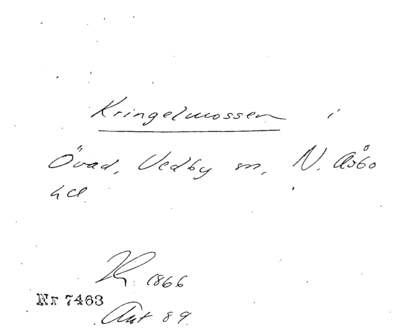 Kringelmossen i
Övad, Vedby sn, N. Åsbo
hd
K. 1866
Nr 7463
Ant 89